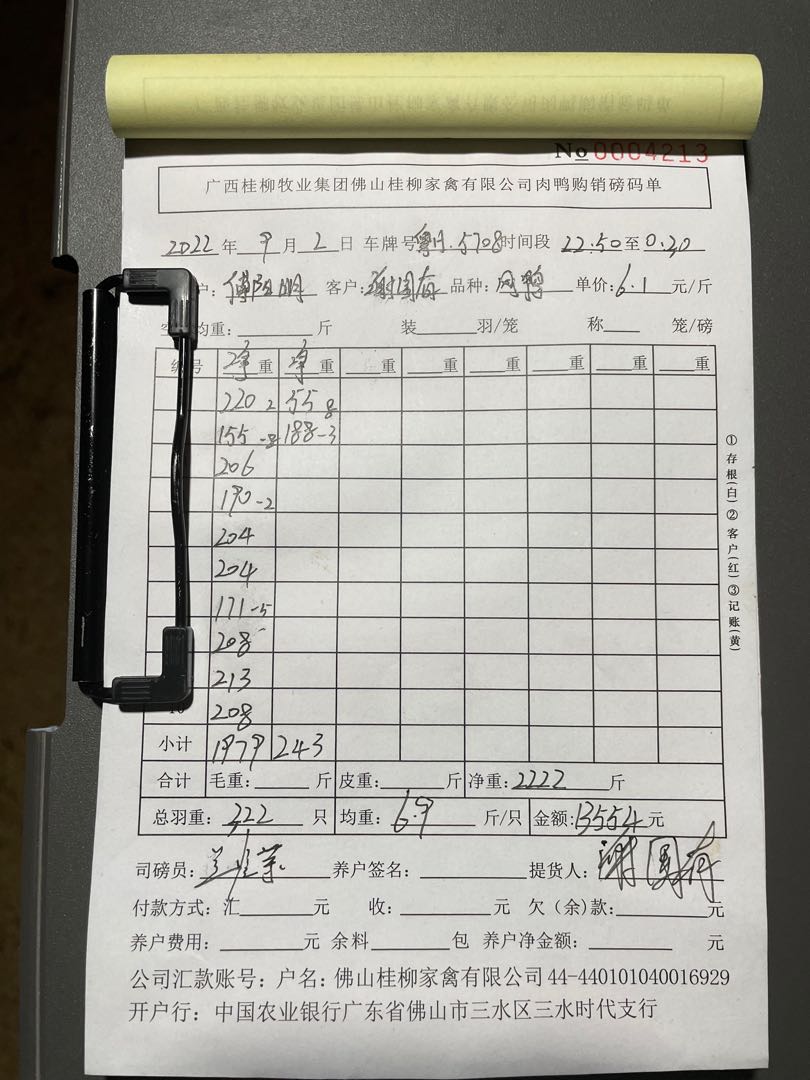 No 0004213
广西桂柳牧业集团佛山桂柳家禽有限公司肉鸭购销磅码单
2022年9月2日 车牌号 5708 时间段 22:50至0:20
户: 傅 明 客户:谢国有 品种: 鸭 单价:6.1元/斤
空 均重:____斤 装____羽/笼 称____笼/磅
编号 净重 净重 ___重 ___重 ___重 ___重 ___重 ___重
220 2 55 8
155-8 188-3
206
190-2
204
204
171-5
208
213
10 208
小计 1979 243
合计 毛重:____斤 皮重:____斤 净重:2222斤
总羽重:322只 均重:6.9斤/只 金额:13554元
司磅员: 养户签名:____ 提货人:谢国有
付款方式:汇____元 收:____元 欠(余)款:____元
养户费用:____元 余料____包 养户净金额:____元
公司汇款账号:户名:佛山桂柳家禽有限公司44-440101040016929
开户行:中国农业银行广东省佛山市三水区三水时代支行
①存根(白)②客户(红)③记账(黄)